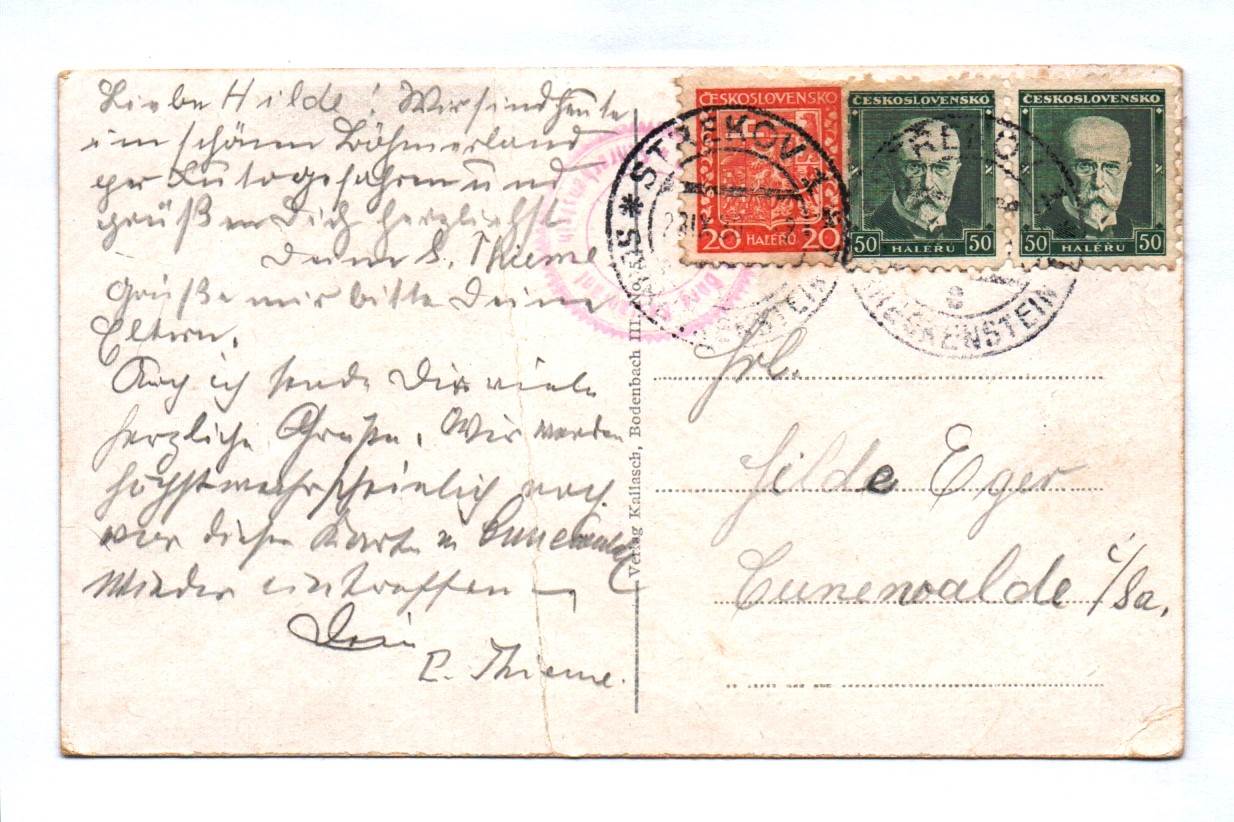 Liebe Hilde! Wir sind heute
im schönen Böhmerland
per Auto gefahren und
grüßen Dich herzlichst
Deine S. Thieme
Grüße mir bitte Deine
Eltern.
Auch ich sende Dir viele
herzliche Grüße. Wir werden
höchstwahrscheinlich noch
vor dieser Karte in Cunewalde
wieder eintreffen
Dein
E. Thieme.
Verlag Kallasch, Bodenbach III.
ČESKOSLOVENSKO
20 HALÉŘŮ 20
ČESKOSLOVENSKO
50 HALÉŘŮ 50
ČESKOSLOVENSKO
50 HALÉŘŮ 50
STŘEKOV 1
SCHRECKENSTEIN
Frl.
Hilde Eger
Cunewalde i/Sa.